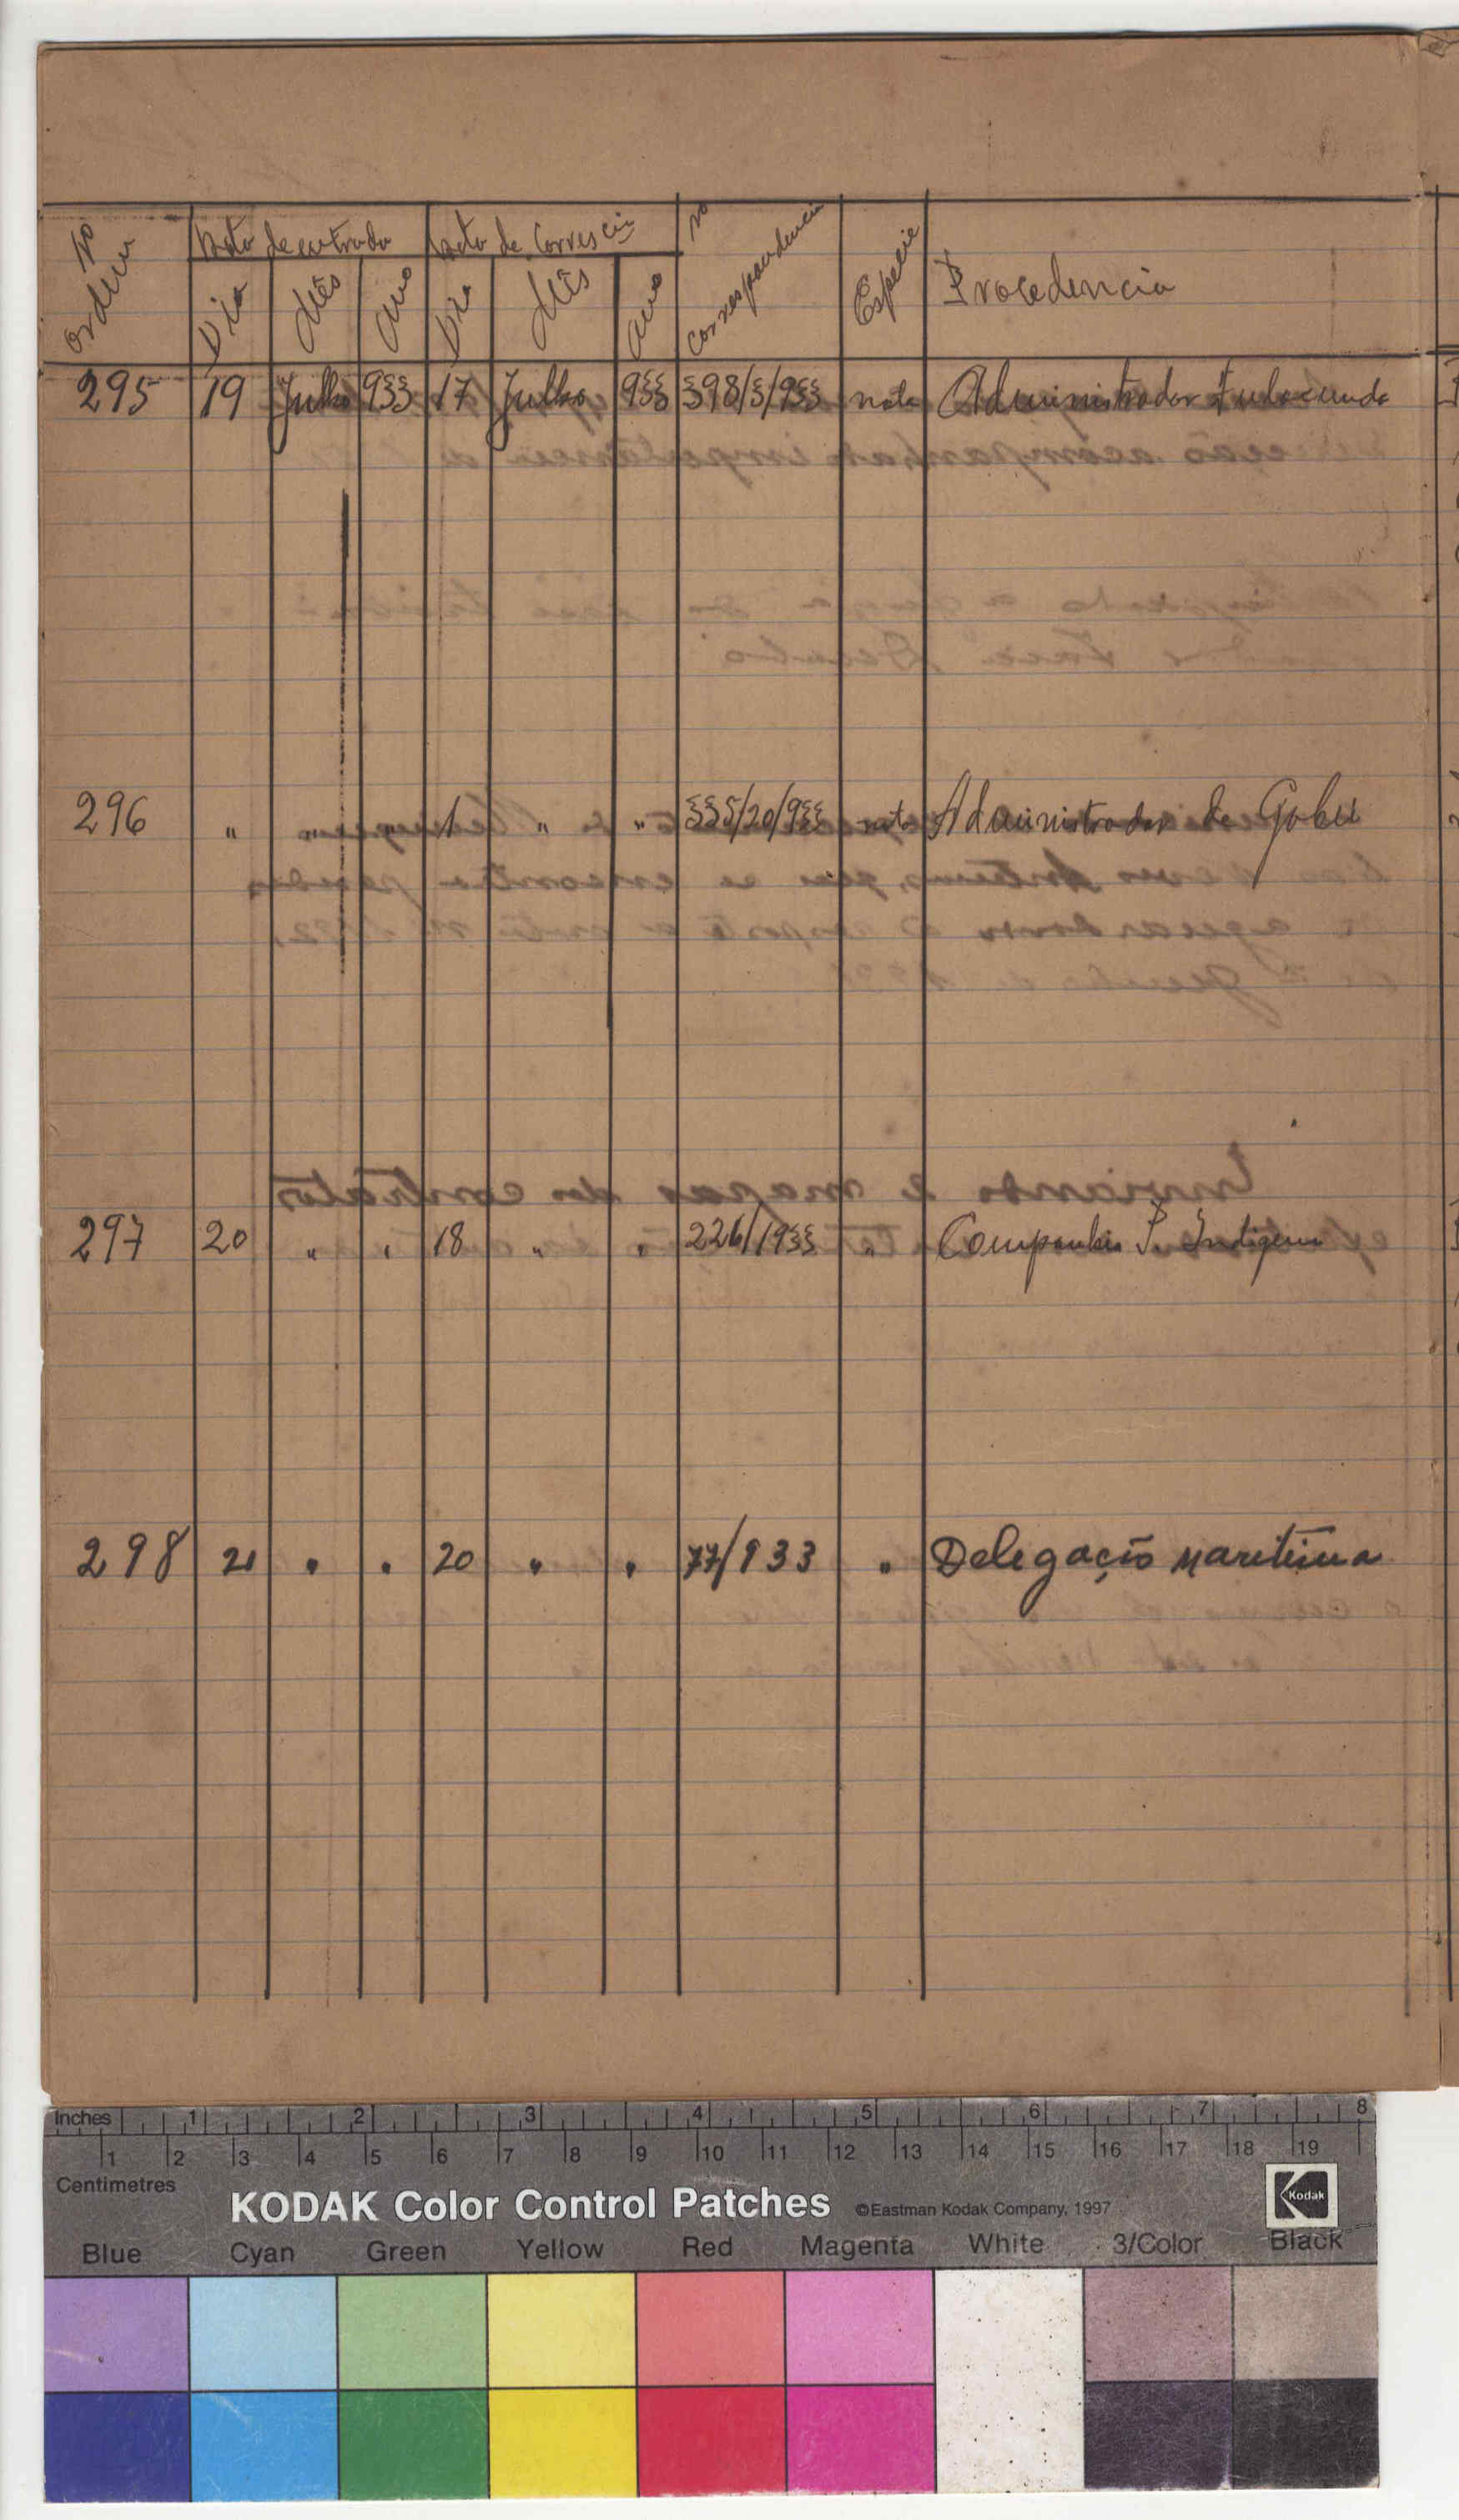 No ordem Data de entrada Data de Corresc.ia No correspondencia Especie Procedencia
Dia Mês Ano Dia Mês Ano
295 19 Julho 933 17 Julho 933 398/3/933 nota Administrador Fulacunda
296 " " " 1 " " 335/20/933 nota Administrador de Gabú
297 20 " " 18 " " 226/1933 " Companhia P. Indigena
298 21 " " 20 " " 77/933 " Delegação maritima
Inches 1 2 3 4 5 6 7 8
1 2 3 4 5 6 7 8 9 10 11 12 13 14 15 16 17 18 19
Centimetres
KODAK Color Control Patches ©Eastman Kodak Company, 1997 Kodak
Blue Cyan Green Yellow Red Magenta White 3/Color Black